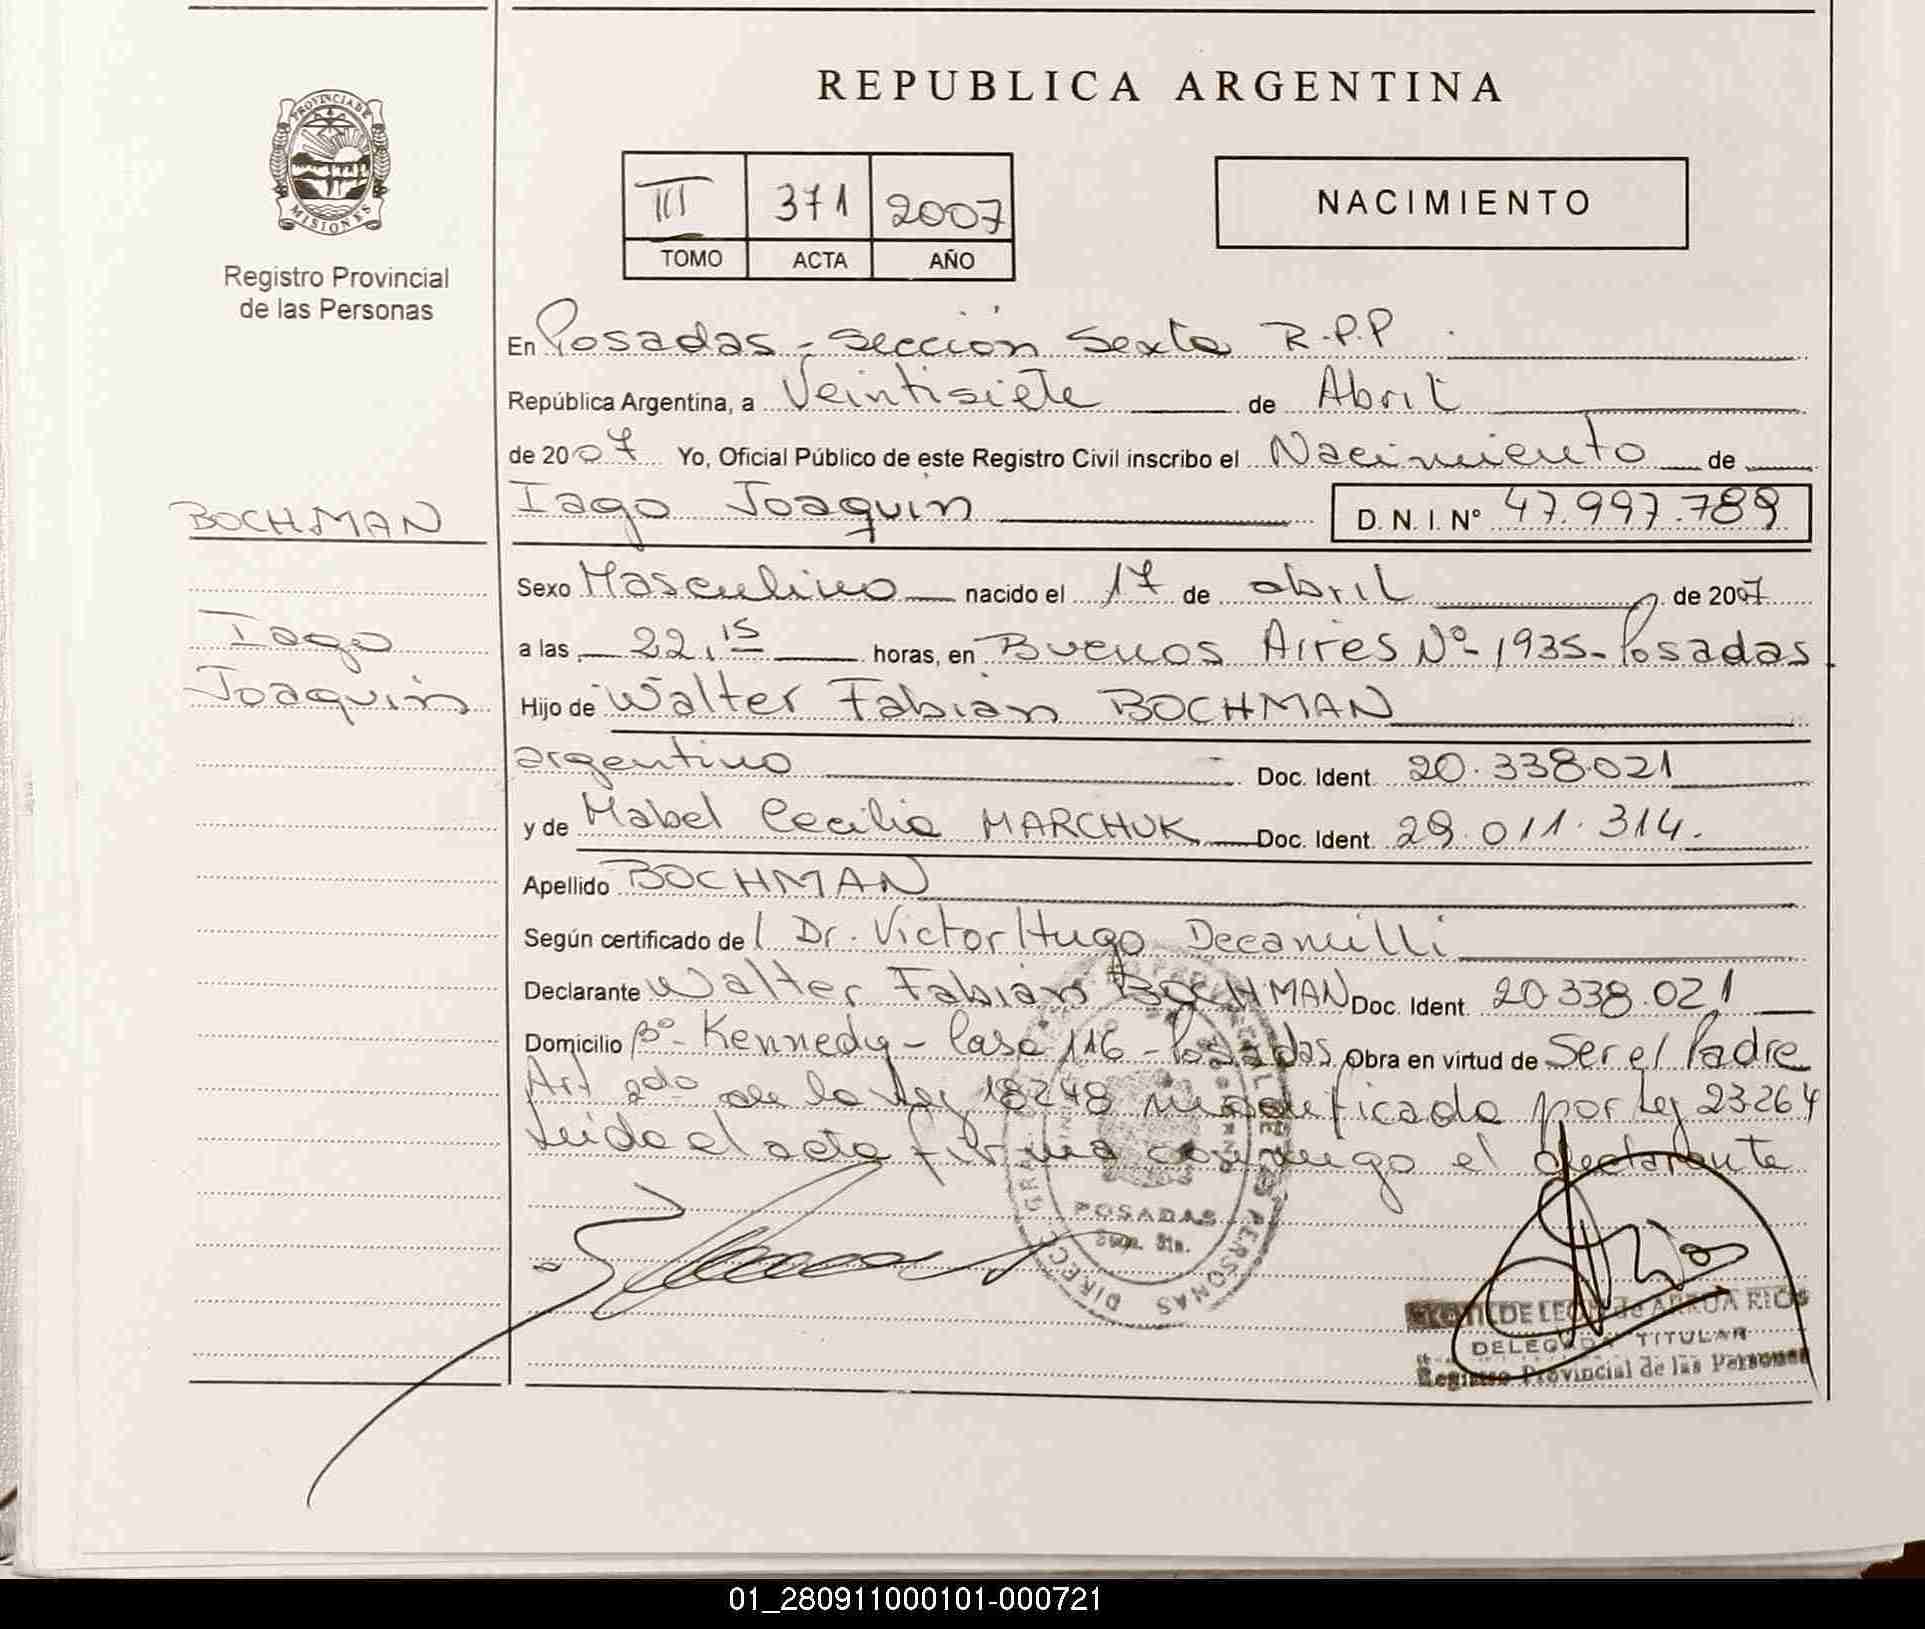 REPUBLICA ARGENTINA
PROVINCIA DE
MISIONES
Registro Provincial
de las Personas
III 371 2007
TOMO ACTA AÑO
NACIMIENTO
En Posadas - Sección Sexta R.P.P
República Argentina, a Veintisiete de Abril
de 2007 Yo, Oficial Público de este Registro Civil inscribo el Nacimiento de
BOCHMAN
Iago Joaquin D. N. I. Nº 47.997.789
Sexo Masculino nacido el 17 de abril de 2007
Iago
a las 22,15 horas, en Buenos Aires Nº 1935- Posadas
Joaquin
Hijo de Walter Fabian BOCHMAN
argentino Doc. Ident. 20.338.021
y de Mabel Cecilia MARCHUK Doc. Ident. 29.011.314.
Apellido BOCHMAN
Según certificado de l Dr. Victor Hugo Decamilli
Declarante Walter Fabián BOCHMAN Doc. Ident. 20.338.021
Domicilio Bº- Kennedy - Casa 116 - Posadas Obra en virtud de Ser el Padre
Art 2do de la Ley 18248 modificada por Ley 23264
Leida el acta firma conmigo el declarante
POSADAS
DE LEON de ARRUA RIOS
DELEGADA TITULAR
Registro Provincial de las Personas
01_280911000101-000721